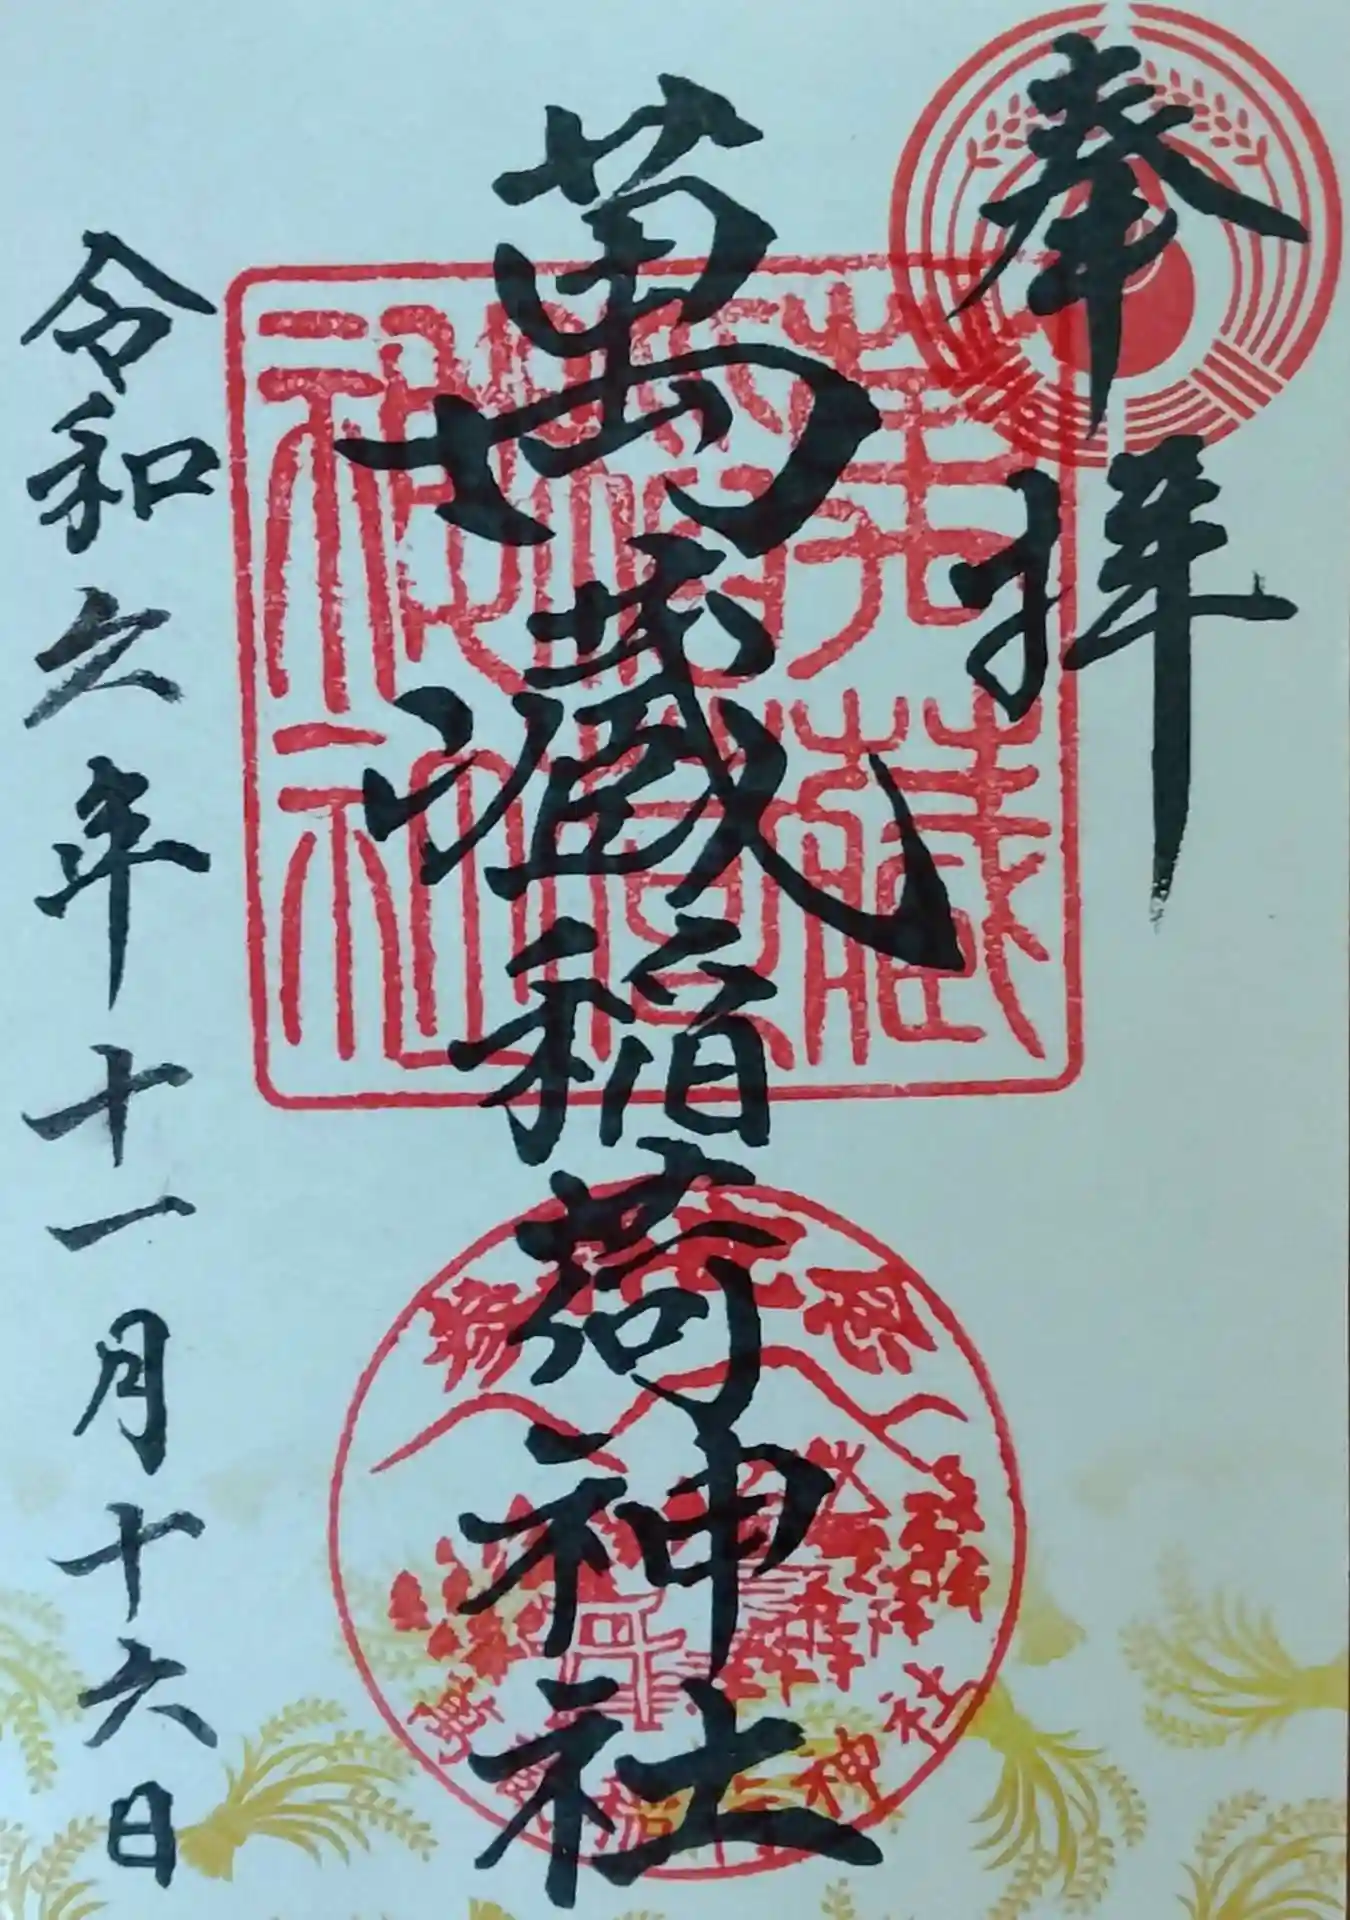 奉拝
萬蔵稲荷神社
令和六年十一月十六日